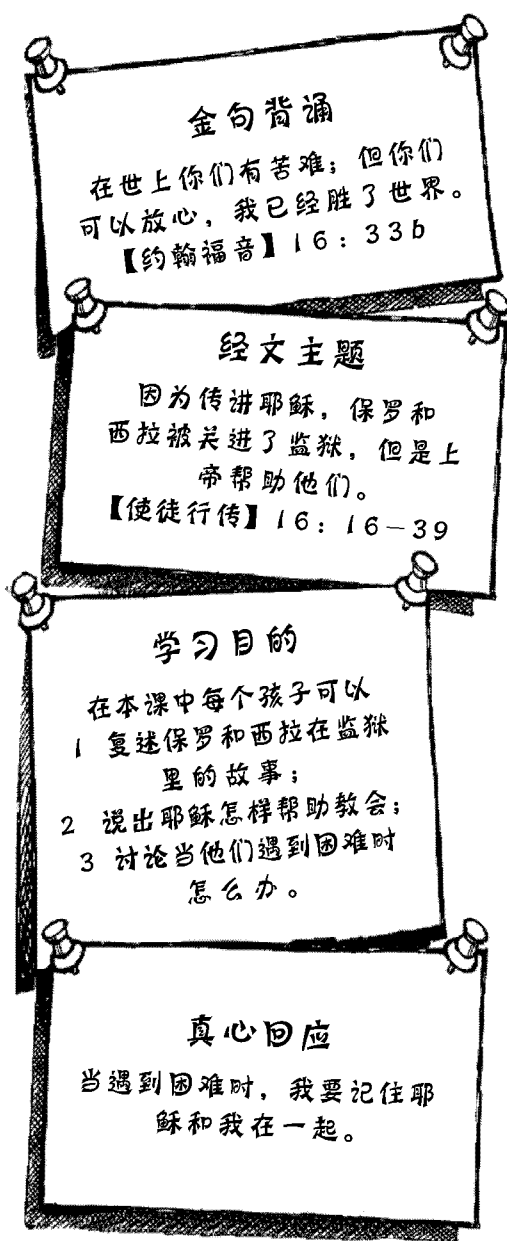 金句背诵
在世上你们有苦难；但你们
可以放心，我已经胜了世界。
【约翰福音】16：33b
经文主题
因为传讲耶稣，保罗和
西拉被关进了监狱，但是上
帝帮助他们。
【使徒行传】16：16－39
学习目的
在本课中每个孩子可以
1 复述保罗和西拉在监狱
里的故事；
2 说出耶稣怎样帮助教会；
3 讨论当他们遇到困难时
怎么办。
真心回应
当遇到困难时，我要记住耶
稣和我在一起。